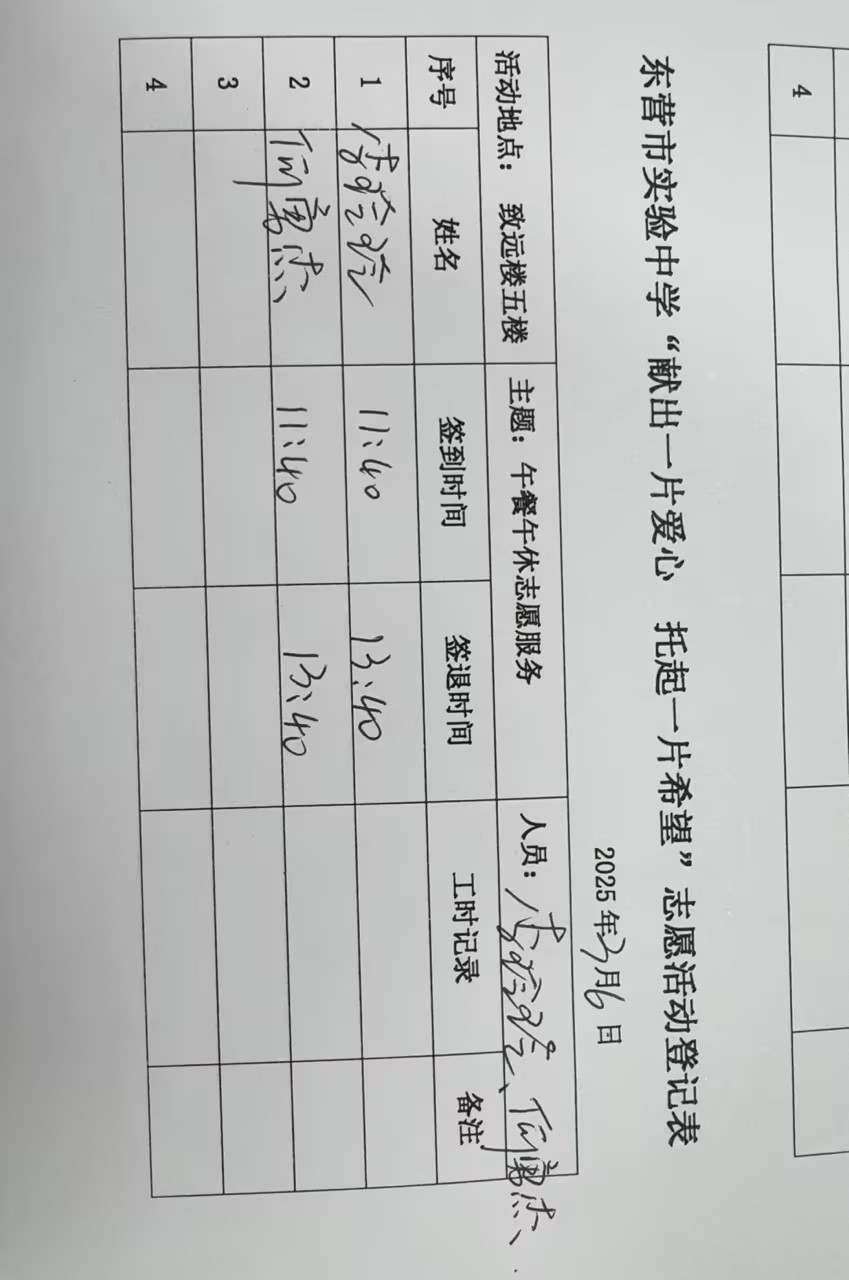 4
东营市实验中学“献出一片爱心 托起一片希望”志愿活动登记表
2025年3月6日
活动地点：致远楼五楼 主题：午餐午休志愿服务 人员：
序号 姓名 签到时间 签退时间 工时记录 备注
1 11:40 13:40
2 11:40 13:40
3
4